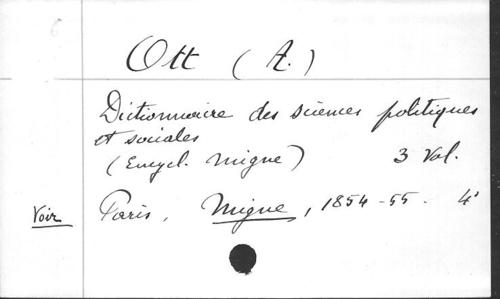 Ott (A.)
Dictionnaire des sciences politiques
et sociales
(Encycl. Migne) 3 Vol.
Voir Paris, Migne, 1854-55. 4°